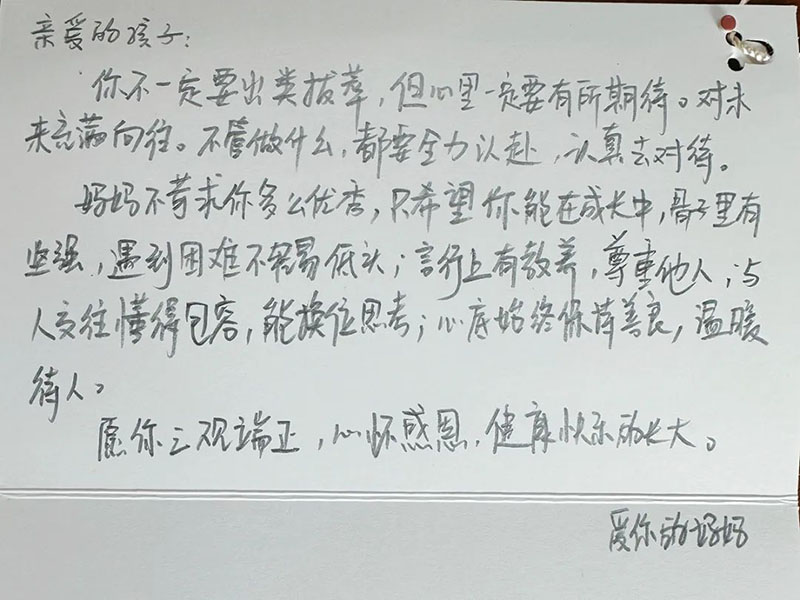 亲爱的孩子：
你不一定要出类拔萃，但心里一定要有所期待。对未
来充满向往。不管做什么，都要全力以赴，认真去对待。
妈妈不苛求你多么优秀，只希望你能在成长中，骨子里有
坚强，遇到困难不轻易低头；言行上有教养，尊重他人；与
人交往懂得包容，能换位思考；心底始终保持善良，温暖
待人。
愿你三观端正，心怀感恩，健康快乐的长大。
爱你的妈妈